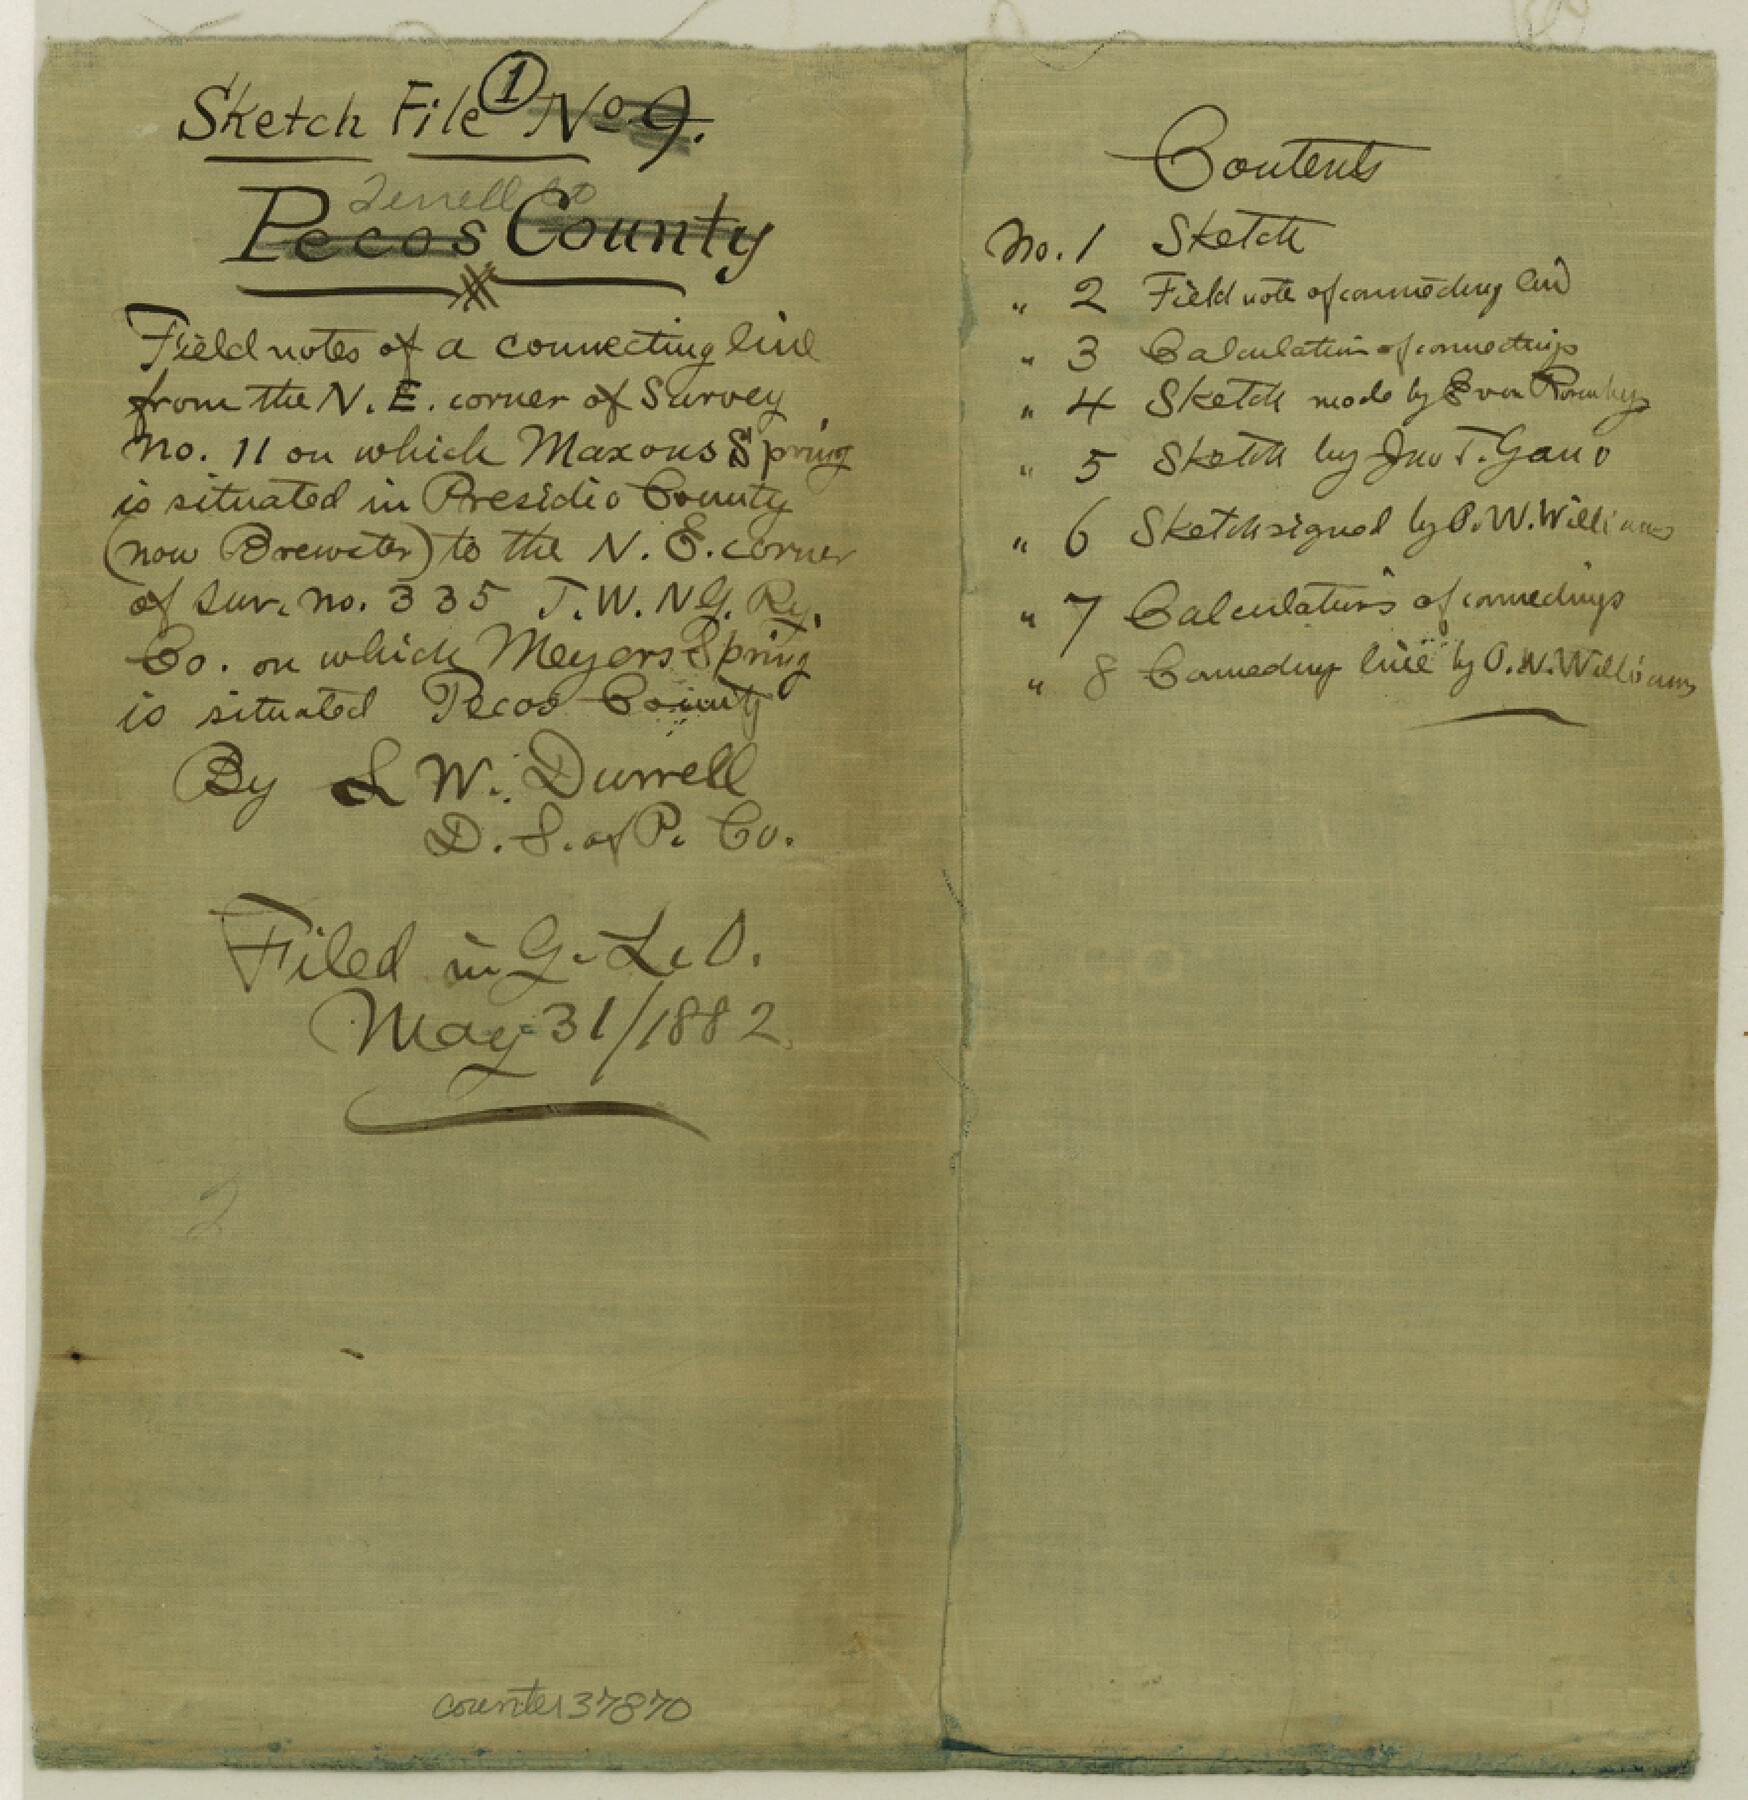 Sketch File ① No. 9.
Terrell Co
Pecos County
Field notes of a connecting line
from the N. E. corner of Survey
No. 11 on which Maxons Spring
is situated in Presidio County
(now Brewster) to the N. E. corner
of Sur. No. 335 T. W. NG. Ry.
Co. on which Meyers Spring
is situated Pecos County
By L W. Durrell
D. S. of P. Co.
Filed in G. L. O.
May 31/1882
2
counter 37870
Contents
No. 1 Sketch
" 2 Field note of connecting line
" 3 Calculation of connectings
" 4 Sketch made by Evan
" 5 Sketch by Jno T. Gano
" 6 Sketch signed by O. W. Williams
" 7 Calculations of connectings
" 8 Connecting line by O. W. Williams